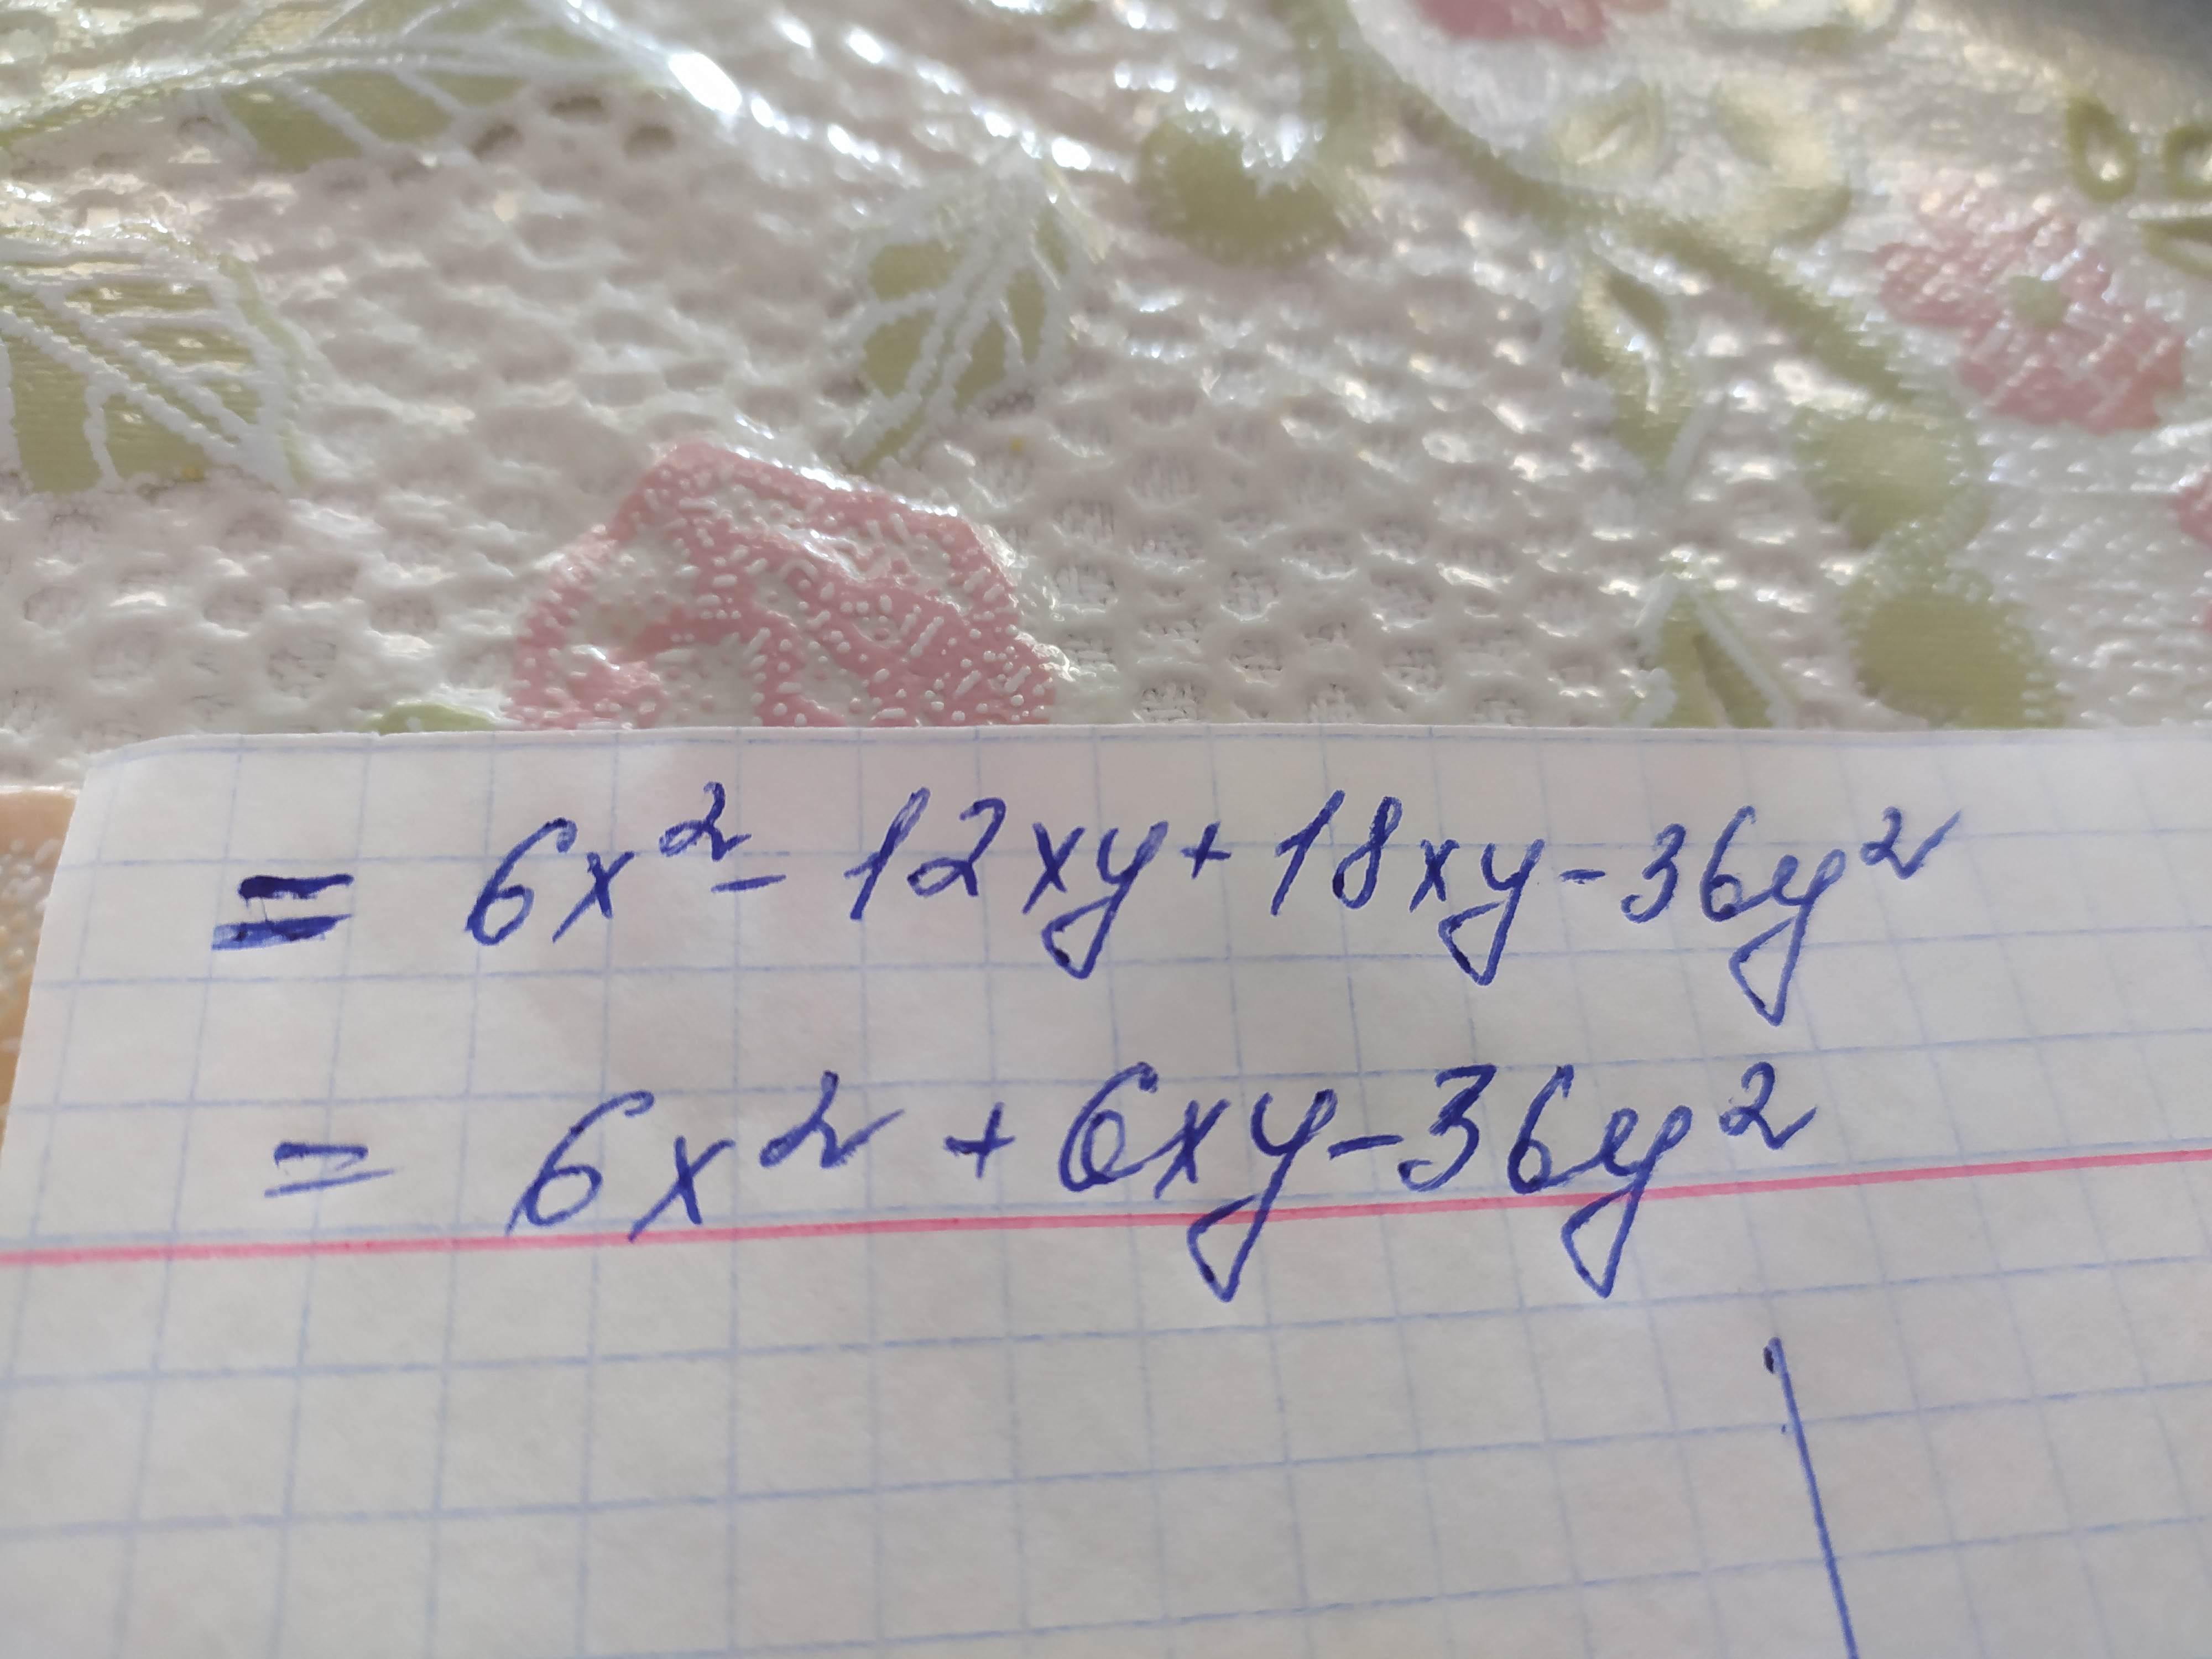 = 6x² - 12xy + 18xy - 36y²
= 6x² + 6xy - 36y²